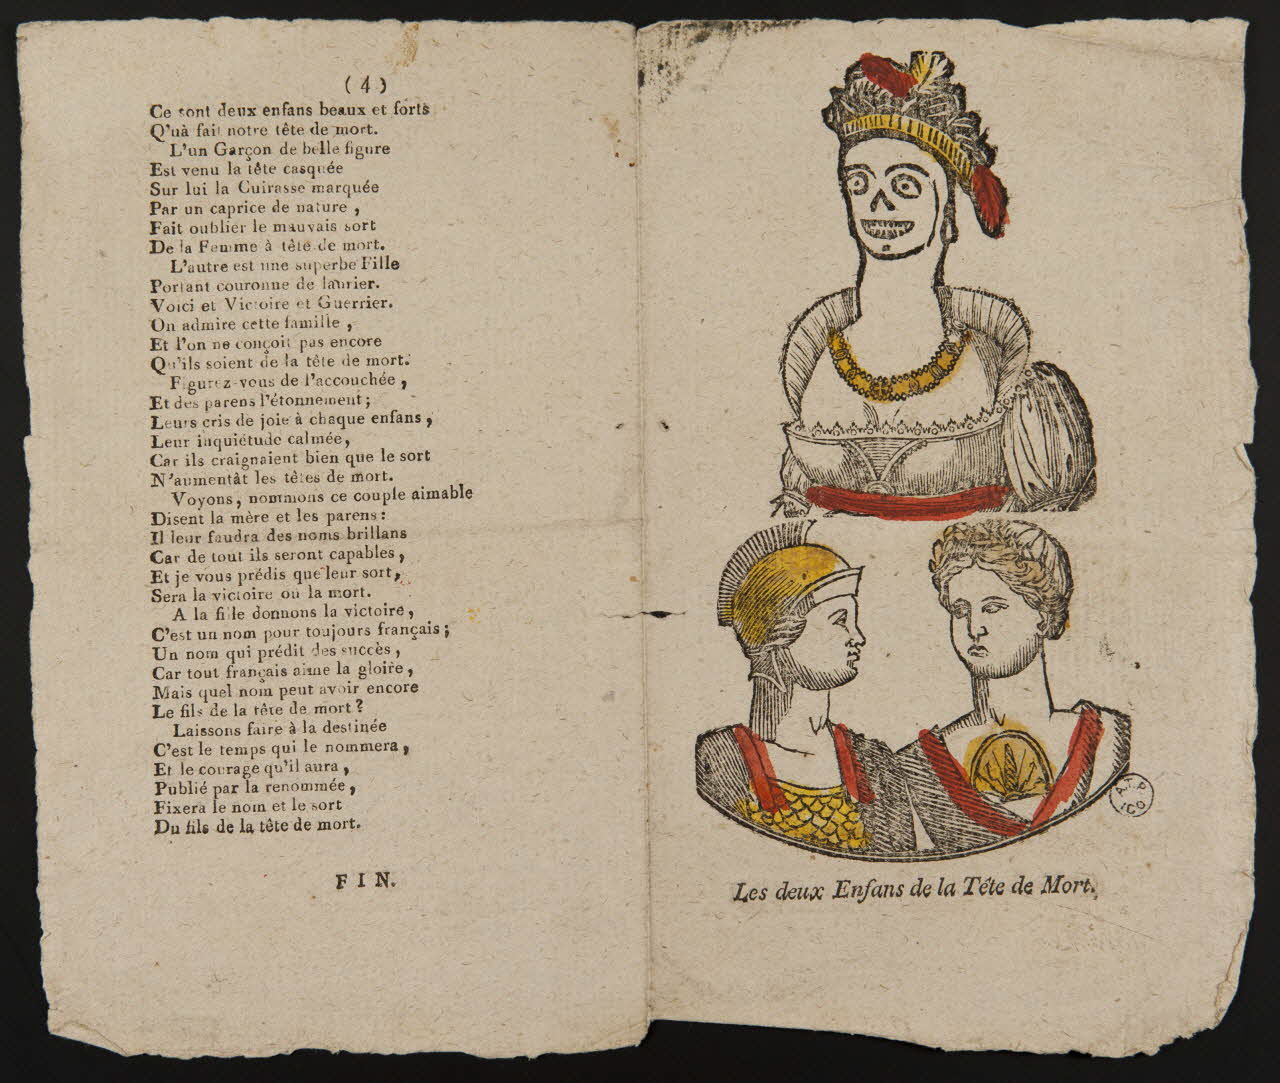 (4)
Ce sont deux enfans beaux et forts
Q'uà fait notre tête de mort.
L'un Garçon de belle figure
Est venu la tête casquée
Sur lui la Cuirasse marquée
Par un caprice de nature ,
Fait oublier le mauvais sort
De la Femme à tête de mort.
L'autre est une superbe Fille
Portant couronne de laurier.
Voici et Victoire et Guerrier.
On admire cette famille ,
Et l'on ne conçoit pas encore
Qu'ils soient de la tête de mort.
Figurez-vous de l'accouchée ,
Et des parens l'étonnement ;
Leurs cris de joie à chaque enfans ,
Leur inquiétude calmée,
Car ils craignaient bien que le sort
N'aumentât les têtes de mort.
Voyons, nommons ce couple aimable
Disent la mère et les parens :
Il leur faudra des noms brillans
Car de tout ils seront capables ,
Et je vous prédis que leur sort,
Sera la victoire ou la mort.
A la fille donnons la victoire ,
C'est un nom pour toujours français ;
Un nom qui prédit des succès ,
Car tout français aime la gloire ,
Mais quel nom peut avoir encore
Le fils de la tête de mort ?
Laissons faire à la destinée
C'est le temps qui le nommera ,
Et le courage qu'il aura ,
Publié par la renommée ,
Fixera le nom et le sort
Du fils de la tête de mort.
FIN.
Les deux Enfans de la Tête de Mort.